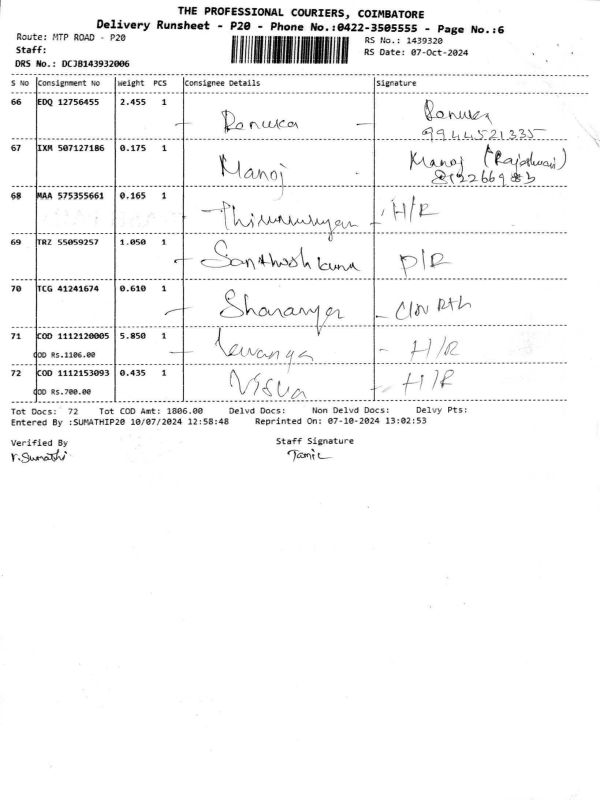 THE PROFESSIONAL COURIERS, COIMBATORE
Delivery Runsheet - P20 - Phone No.:0422-3505555 - Page No.:6
Route: MTP ROAD - P20
RS No.: 1439320
Staff:
RS Date: 07-Oct-2024
DRS No.: DCJB143932006
S No Consignment No Weight PCS Consignee Details Signature
66 EDQ 12756455 2.455 1 - Ranuka - Ranuka
9944521335
67 IXM 507127186 0.175 1 Manoj Manoj
68 MAA 575355661 0.165 1 - - H/R
69 TRZ 55059257 1.050 1 - P/R
70 TCG 41241674 0.610 1 - Sharanya -
71 COD 1112120005 5.850 1 - - H/R
COD Rs.1106.00
72 COD 1112153093 0.435 1 Visva - H/R
COD Rs.700.00
Tot Docs: 72 Tot COD Amt: 1806.00 Delvd Docs: Non Delvd Docs: Delvy Pts:
Entered By :SUMATHIP20 10/07/2024 12:58:48 Reprinted On: 07-10-2024 13:02:53
Verified By Staff Signature
V.Sumathi Tamil